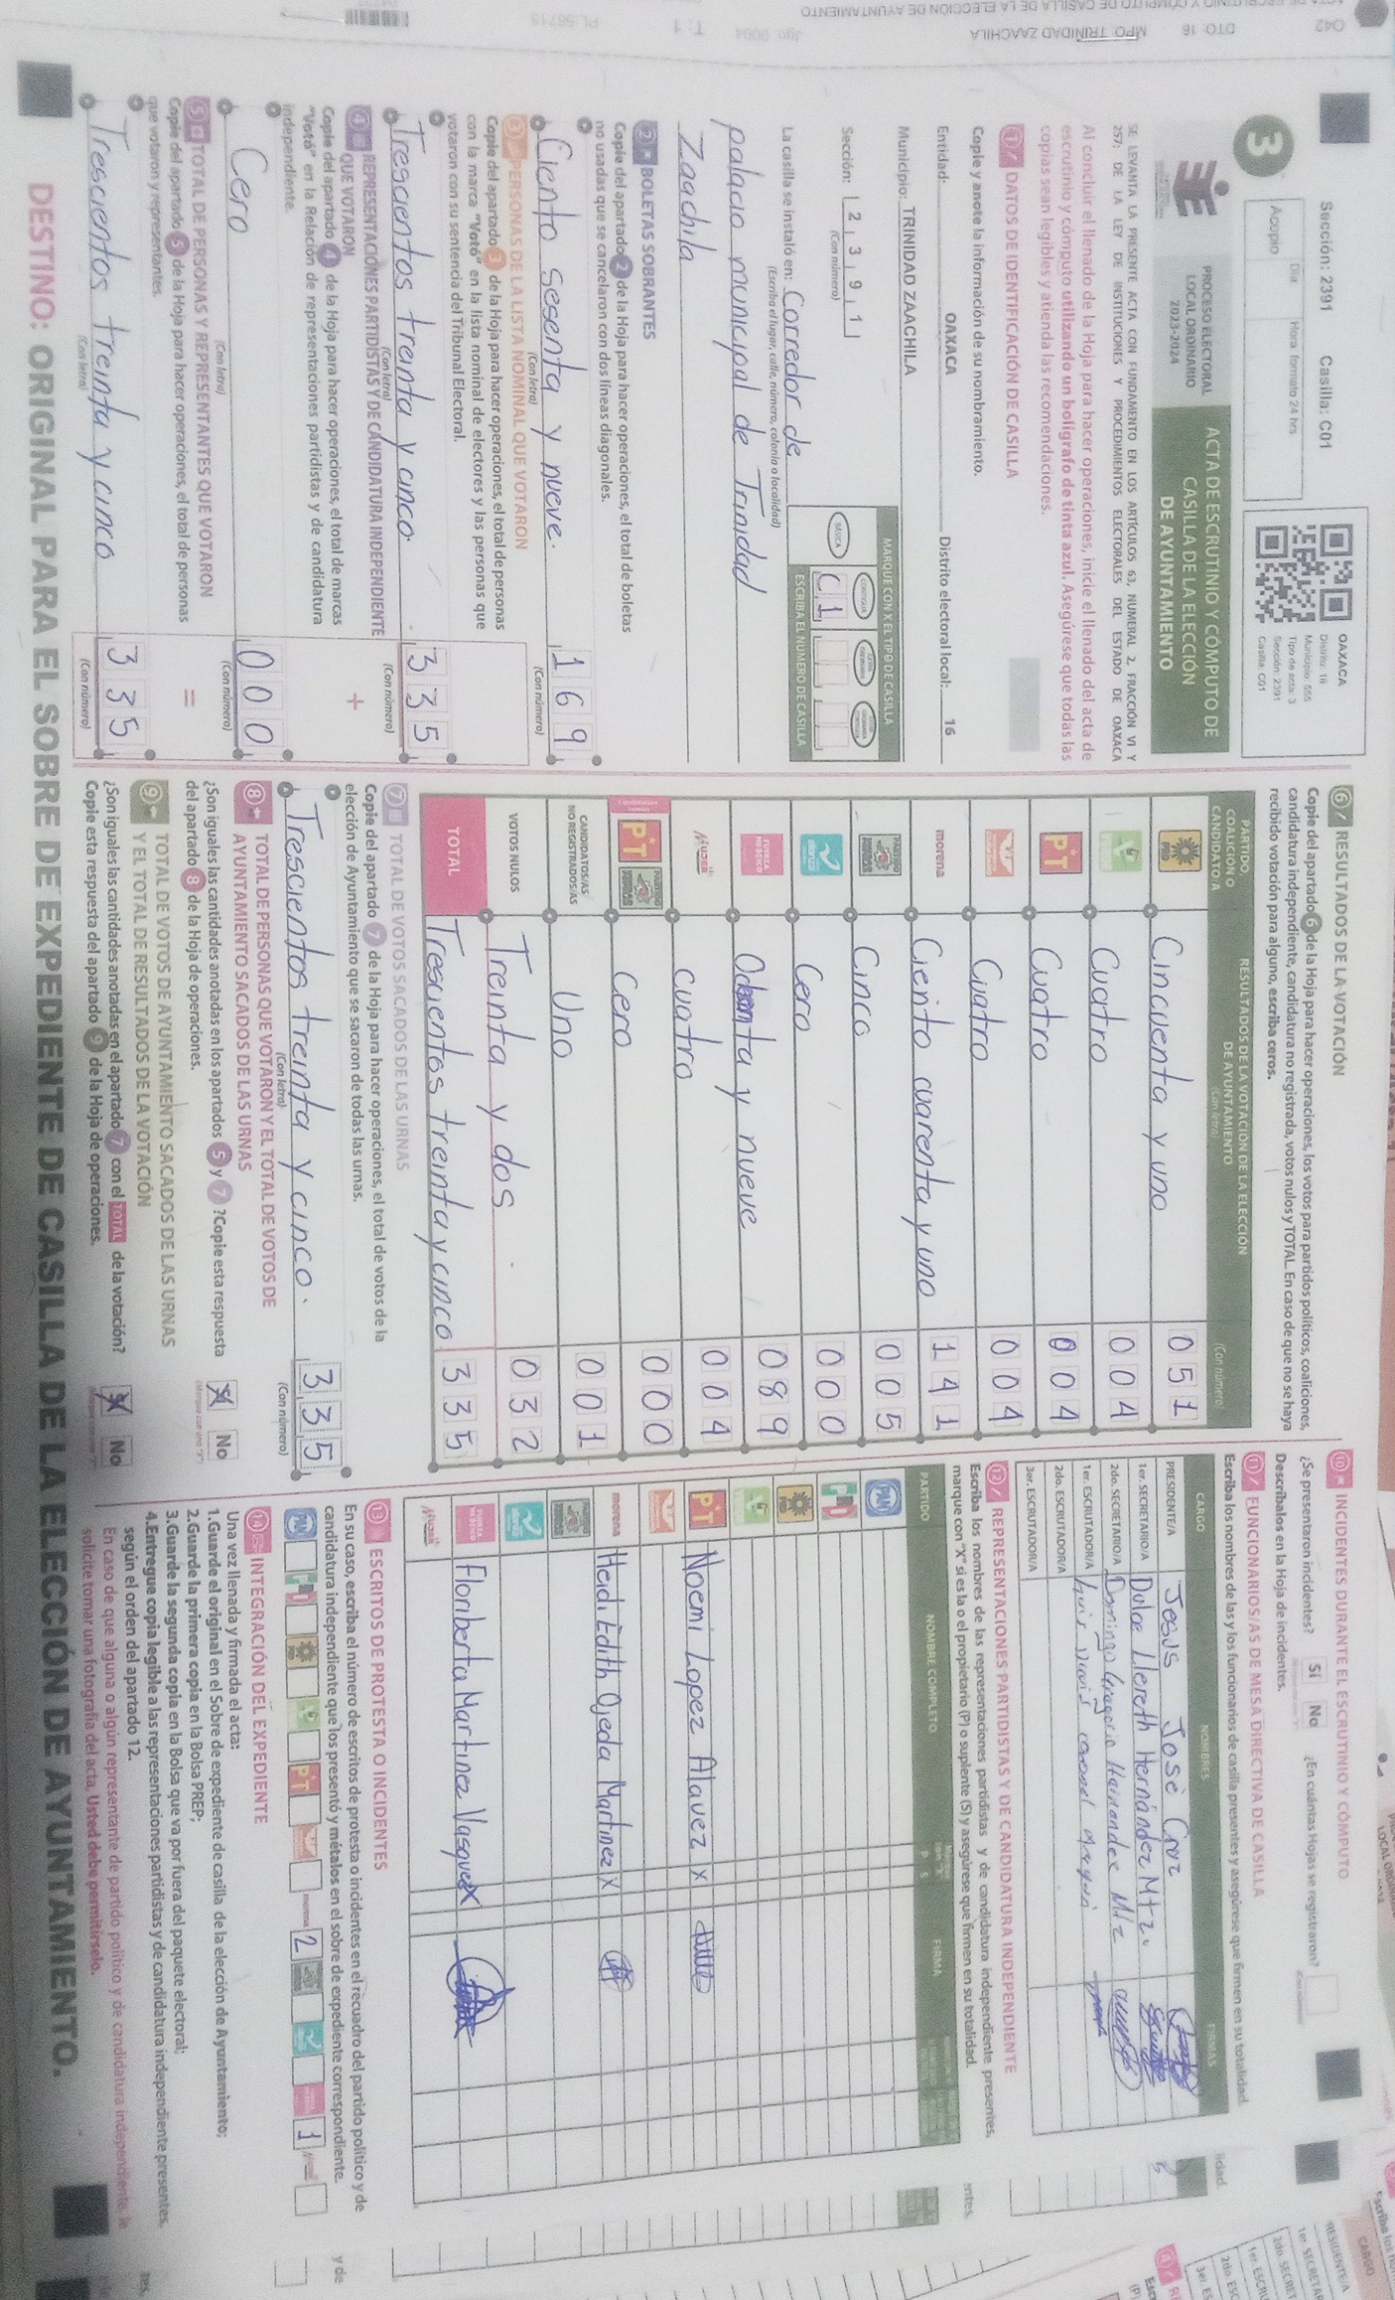 Sección: 2391 Casilla: C01
3
Acopio
Día
Hora formato 24 hrs
OAXACA
Distrito: 16
Municipio: 555
Tipo de acta: 3
Sección: 2391
Casilla: C01
PROCESO ELECTORAL
LOCAL ORDINARIO
2023-2024
ACTA DE ESCRUTINIO Y CÓMPUTO DE
CASILLA DE LA ELECCIÓN
DE AYUNTAMIENTO
SE LEVANTA LA PRESENTE ACTA CON FUNDAMENTO EN LOS ARTÍCULOS 63, NUMERAL 2, FRACCIÓN VI Y
257; DE LA LEY DE INSTITUCIONES Y PROCEDIMIENTOS ELECTORALES DEL ESTADO DE OAXACA
Al concluir el llenado de la Hoja para hacer operaciones, inicie el llenado del acta de
escrutinio y cómputo utilizando un bolígrafo de tinta azul. Asegúrese que todas las
copias sean legibles y atienda las recomendaciones.
1 DATOS DE IDENTIFICACIÓN DE CASILLA
Copie y anote la información de su nombramiento.
Entidad: OAXACA Distrito electoral local: 16
Municipio: TRINIDAD ZAACHILA
Sección: 2 3 9 1
(Con número)
MARQUE CON X EL TIPO DE CASILLA
BÁSICA
C 1
ESCRIBA EL NÚMERO DE CASILLA
La casilla se instaló en: Corredor de
(Escriba el lugar, calle, número, colonia o localidad)
palacio municipal de Trinidad
Zaachila
2 BOLETAS SOBRANTES
Copie del apartado 2 de la Hoja para hacer operaciones, el total de boletas
no usadas que se cancelaron con dos líneas diagonales.
Ciento sesenta y nueve. 1 6 9
(Con letra) (Con número)
3 PERSONAS DE LA LISTA NOMINAL QUE VOTARON
Copie del apartado 3 de la Hoja para hacer operaciones, el total de personas
con la marca "Votó" en la lista nominal de electores y las personas que
votaron con su sentencia del Tribunal Electoral.
Trescientos treinta y cinco. 3 3 5
(Con letra) (Con número)
4 REPRESENTACIONES PARTIDISTAS Y DE CANDIDATURA INDEPENDIENTE
QUE VOTARON +
Copie del apartado 4 de la Hoja para hacer operaciones, el total de marcas
"Votó" en la Relación de representaciones partidistas y de candidatura
independiente.
Cero 0 0 0
(Con letra) (Con número)
5 TOTAL DE PERSONAS Y REPRESENTANTES QUE VOTARON =
Copie del apartado 5 de la Hoja para hacer operaciones, el total de personas
que votaron y representantes.
Trescientos treinta y cinco 3 3 5
(Con letra) (Con número)
6 RESULTADOS DE LA VOTACIÓN
Copie del apartado 6 de la Hoja para hacer operaciones, los votos para partidos políticos, coaliciones,
candidatura independiente, candidatura no registrada, votos nulos y TOTAL. En caso de que no se haya
recibido votación para alguno, escriba ceros.
PARTIDO,
COALICIÓN O
CANDIDATO/A
RESULTADOS DE LA VOTACIÓN DE LA ELECCIÓN
DE AYUNTAMIENTO
(Con letra) (Con número)
PRD Cincuenta y uno 0 5 1
Cuatro 0 0 4
PT Cuatro 0 0 4
Cuatro 0 0 4
morena Ciento cuarenta y uno 1 4 1
Cinco 0 0 5
Cero 0 0 0
FUERZA MÉXICO y nueve 0 8 9
Mujer cuatro 0 0 4
PT Cero 0 0 0
CANDIDATOS/AS
NO REGISTRADOS/AS Uno 0 0 1
VOTOS NULOS Treinta y dos 0 3 2
TOTAL Trescientos treinta y cinco 3 3 5
7 TOTAL DE VOTOS SACADOS DE LAS URNAS
Copie del apartado 7 de la Hoja para hacer operaciones, el total de votos de la
elección de Ayuntamiento que se sacaron de todas las urnas.
Trescientos treinta y cinco. 3 3 5
(Con letra) (Con número)
8 TOTAL DE PERSONAS QUE VOTARON Y EL TOTAL DE VOTOS DE
AYUNTAMIENTO SACADOS DE LAS URNAS
¿Son iguales las cantidades anotadas en los apartados 5 y 7 ? Copie esta respuesta
del apartado 8 de la Hoja de operaciones. Sí No
9 TOTAL DE VOTOS DE AYUNTAMIENTO SACADOS DE LAS URNAS
Y EL TOTAL DE RESULTADOS DE LA VOTACIÓN
¿Son iguales las cantidades anotadas en el apartado 7 con el TOTAL de la votación?
Copie esta respuesta del apartado 9 de la Hoja de operaciones. Sí No
10 INCIDENTES DURANTE EL ESCRUTINIO Y CÓMPUTO
¿Se presentaron incidentes? Sí No ¿En cuántas Hojas se registraron?
Descríbalos en la Hoja de incidentes.
11 FUNCIONARIOS/AS DE MESA DIRECTIVA DE CASILLA
Escriba los nombres de las y los funcionarios de casilla presentes y asegúrese que firmen en su totalidad.
CARGO NOMBRES FIRMAS
PRESIDENTE/A Jesus José Cruz
1er. SECRETARIO/A Dulce Llereth Hernández Mtz.
2do. SECRETARIO/A Domingo Gregorio Hernandez Mtz
1er. ESCRUTADOR/A Luis
2do. ESCRUTADOR/A
3er. ESCRUTADOR/A
12 REPRESENTACIONES PARTIDISTAS Y DE CANDIDATURA INDEPENDIENTE
Escriba los nombres de las representaciones partidistas y de candidatura independiente presentes,
marque con "X" si es la o el propietario (P) o suplente (S) y asegúrese que firmen en su totalidad.
PARTIDO NOMBRE COMPLETO P S FIRMA
PAN
PRI
PRD
PT Noemi Lopez Alavez X
morena Heidi Edith Ojeda Martinez X
FUERZA MÉXICO Floriberta Martinez Vasquez X
Mujer
13 ESCRITOS DE PROTESTA O INCIDENTES
En su caso, escriba el número de escritos de protesta o incidentes en el recuadro del partido político y de
candidatura independiente que los presentó y métalos en el sobre de expediente correspondiente.
PAN PRI PT morena 2 1
14 INTEGRACIÓN DEL EXPEDIENTE
Una vez llenada y firmada el acta:
1.Guarde el original en el Sobre de expediente de casilla de la elección de Ayuntamiento;
2.Guarde la primera copia en la Bolsa PREP;
3.Guarde la segunda copia en la Bolsa que va por fuera del paquete electoral;
4.Entregue copia legible a las representaciones partidistas y de candidatura independiente presentes,
según el orden del apartado 12.
En caso de que alguna o algún representante de partido político y de candidatura independiente, le
solicite tomar una fotografía del acta, Usted debe permitírselo.
DESTINO: ORIGINAL PARA EL SOBRE DE EXPEDIENTE DE CASILLA DE LA ELECCIÓN DE AYUNTAMIENTO.